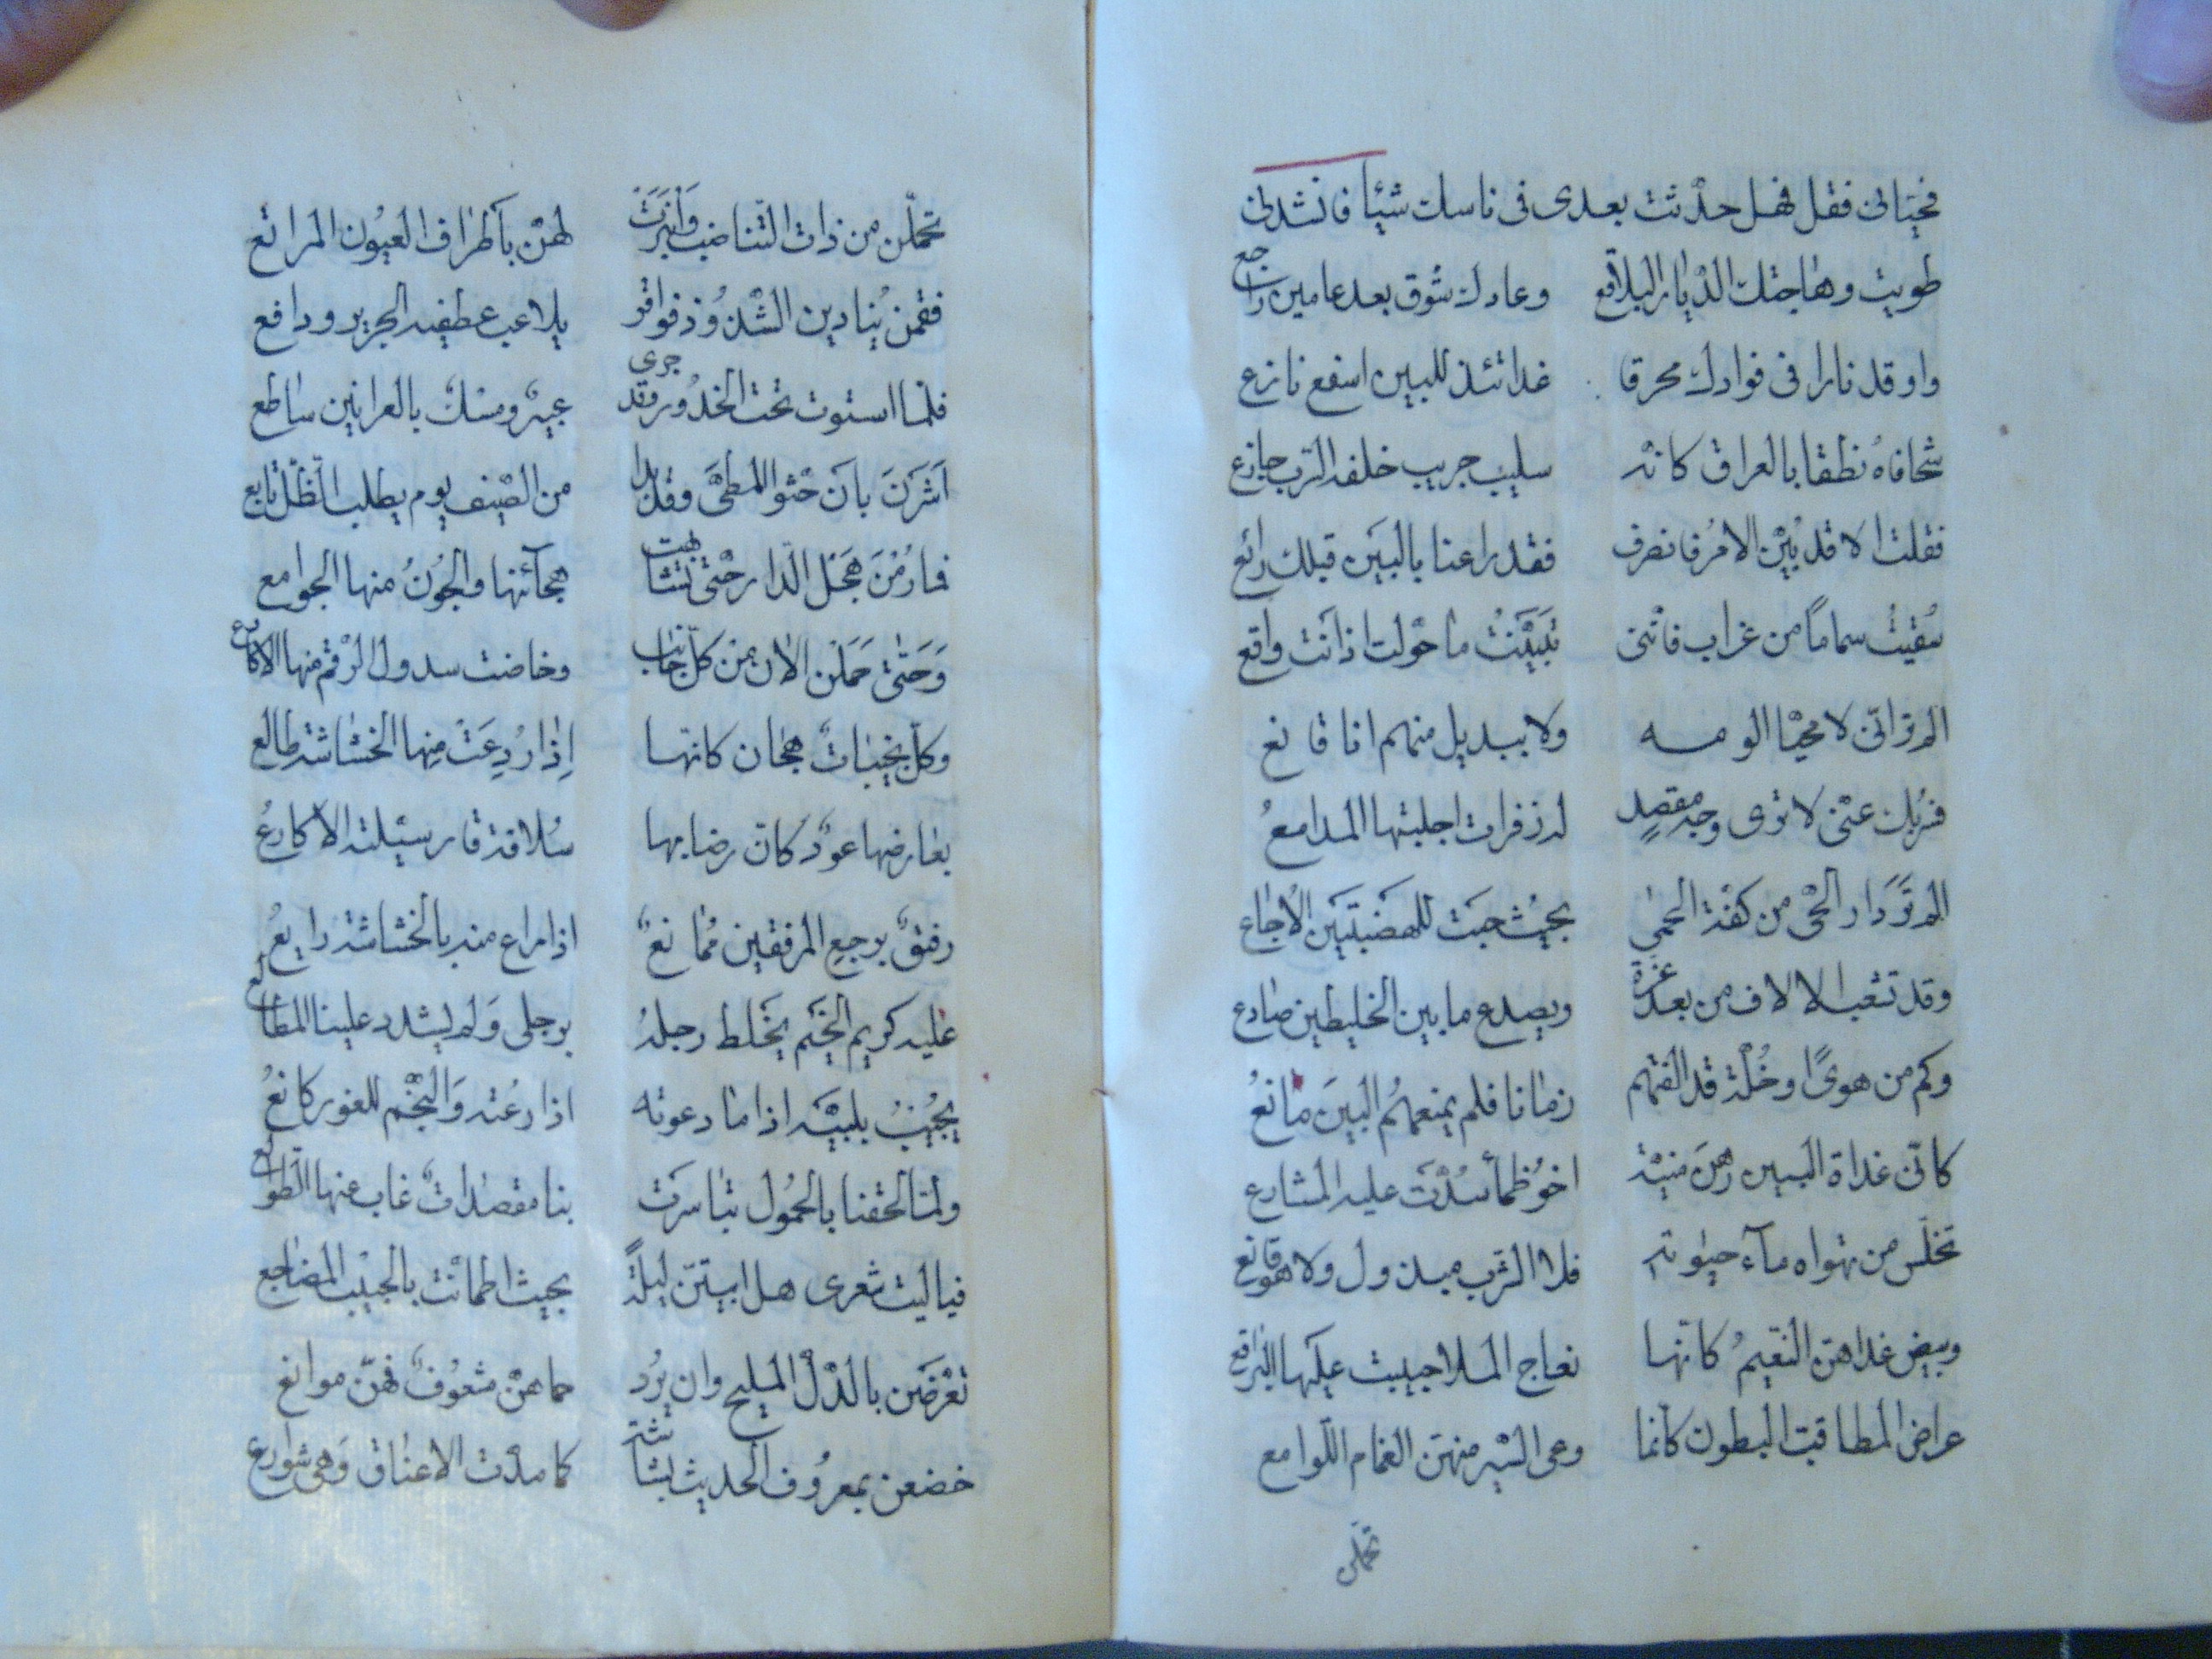 فحيانى فقل فهل حدثت بعدى فى ناسك شيئا فانشدنى
طويت وهاجتك الديار البلاقع وعادك شوق بعد عامين راجع
واوقد نارا فى فوادك محرقا غداتئذ للبين اسفع نازع
شحافاه نطقا بالعراق كانه سليب جريب خلفه الترب جازع
فقلت الا قد بين الامر فانصرف فقد راعنا بالبين قبلك رائع
سقيت سماما من غراب فاننى تبينت ما حولت اذ انت واقع
الم تر انى لا محبا الومه ولا ببديل منهم انا قانع
لا ترى وجه مقصد له زفرات اجلبتها المدامع
الم تر دار الحى من كفة الحمى بحيث حبت للهضبتين الاجاع
وقد تشعب الالاف من بعد عزة ويصدع ما بين الخليطين صادع
وكم من هوى وخلة قد الفتهم زمانا فلم يمنعهم البين مانع
كانى غداة البين رهن منية اخو ظمأ سدت عليه المشارع
تخلس من تهواه مآء حيوته فلا الترب مبذول ولا هو قانع
وبيض غذاهن النعيم كانها نعاج الملا جيبت عليها البراقع
عراض المطا قب البطون كانما وعى السر منهن الغمام اللوامع
تحملن
تحملن من ذات التناضب وانبرت لهن بأطراف العيون المرائع
فقمن ينادين الشد وذفواقر يلاعب عطفيه الجرير ودافع
فلما استوت تحت الخدور وقد جرى عبير ومسك بالعرانين ساطع
اشرن بان حثوا المطى وقد بدا من الصيف يوم يطلب الظل تابع
فما رمن هجل الدار حتى تشابهت هجآئنها والجون منها الجوامع
وحتى حملن الان من كل جانب وخاضت سدول الرقم منها الاكارع
وكل نجيبات هجان كانها إذا ردعت منها الخشاشة طالع
يعارضها عود كان رضابها سلافة قار سيلته الاكارع
رفيق برجع المرفقين ممانع اذا راع منه بالخشاشة رايع
عليه كريم الخيم يخلط رجله برجلى ولم يشدد علينا المطامع
يجيب بلبيه اذا ما دعوته اذا رعته والنجم للغور كانع
ولما لحقنا بالحمول تباسرت بنا مقصدات غاب عنها الطوالع
فيا ليت شعرى هل ابيتن ليلة بحيث اطمأنت بالحبيب المضاجع
تعرضن بالدل المليح وان يرد حماهن مشعوف فهن موانع
خضعن بمعروف الحديث بشاشة كما مدت الاعناق وهى شوارع